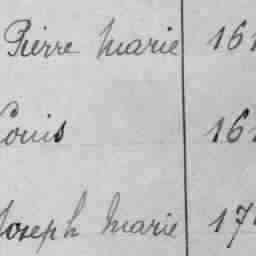 Pierre Marie 16
Louis 16
Joseph Marie 17